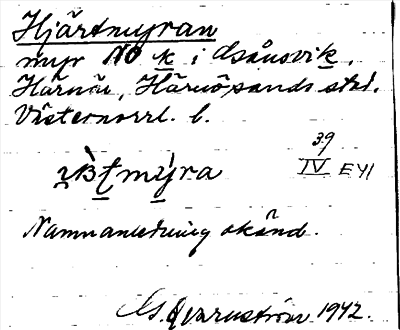 Hjärtmyran
myr NO k i Åsånsvik,
Härnön, Härnösands stad.
Västernorrl. l.
39
IV EYI
Namnanledning okänd.
G. Qvarnström 1942.